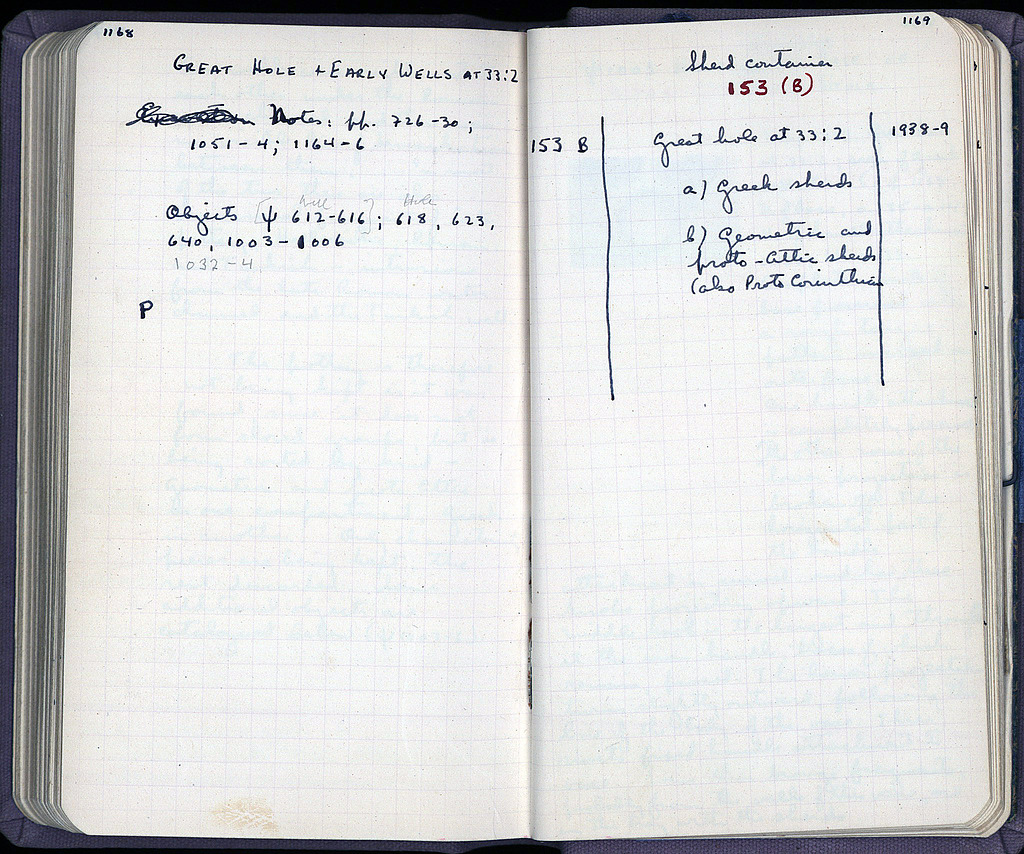 1168
GREAT HOLE + EARLY WELLS AT 33:2
Notes: pp. 726-30;
1051-4; 1164-6
Well Hole
Objects [ψ 612-616]; 618, 623,
640, 1003-1006
1032-4
P
1169
Sherd container
153 (B)
153 B
Great hole at 33:2
1938-9
a) Greek sherds
b) Geometric and
proto-Attic sherds
(also ProtoCorinthian